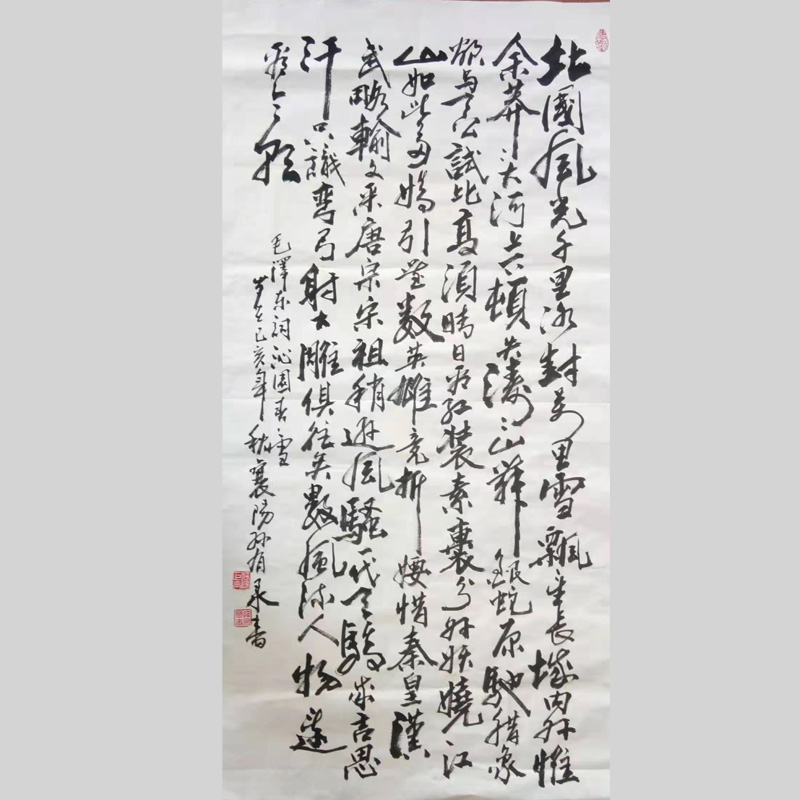 北國風光千里冰封万里雪飄望長城内外惟
余莽大河上下頓失滔山舞銀蛇原馳腊象
欲与天公試比高須晴日看红装素裹分外妖嬈江
山如此多嬌引無数英雄竞折腰惜秦皇漢
武略輸文采唐宗宋祖稍逊風騷一代天驕成吉思
汗只識彎弓射大雕俱往矣數風流人物還
看今朝
毛澤东詞沁園春雪
岁在己亥年秋襄陽孙有書